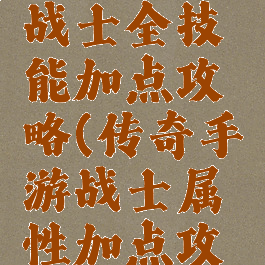 战士全技
能加点攻
略(传奇手
游战士属
性加点攻